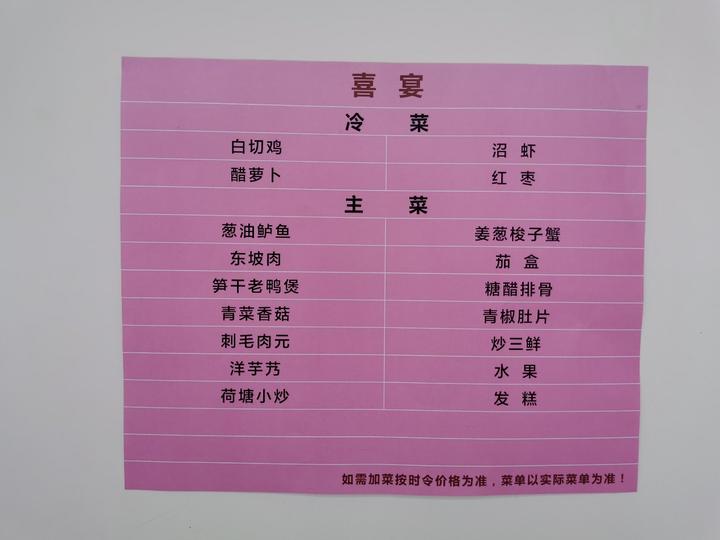 喜 宴
冷 菜
白切鸡 沼 虾
醋萝卜 红 枣
主 菜
葱油鲈鱼 姜葱梭子蟹
东坡肉 茄 盒
笋干老鸭煲 糖醋排骨
青菜香菇 青椒肚片
刺毛肉元 炒三鲜
洋芋艿 水 果
荷塘小炒 发 糕
如需加菜按时令价格为准，菜单以实际菜单为准！